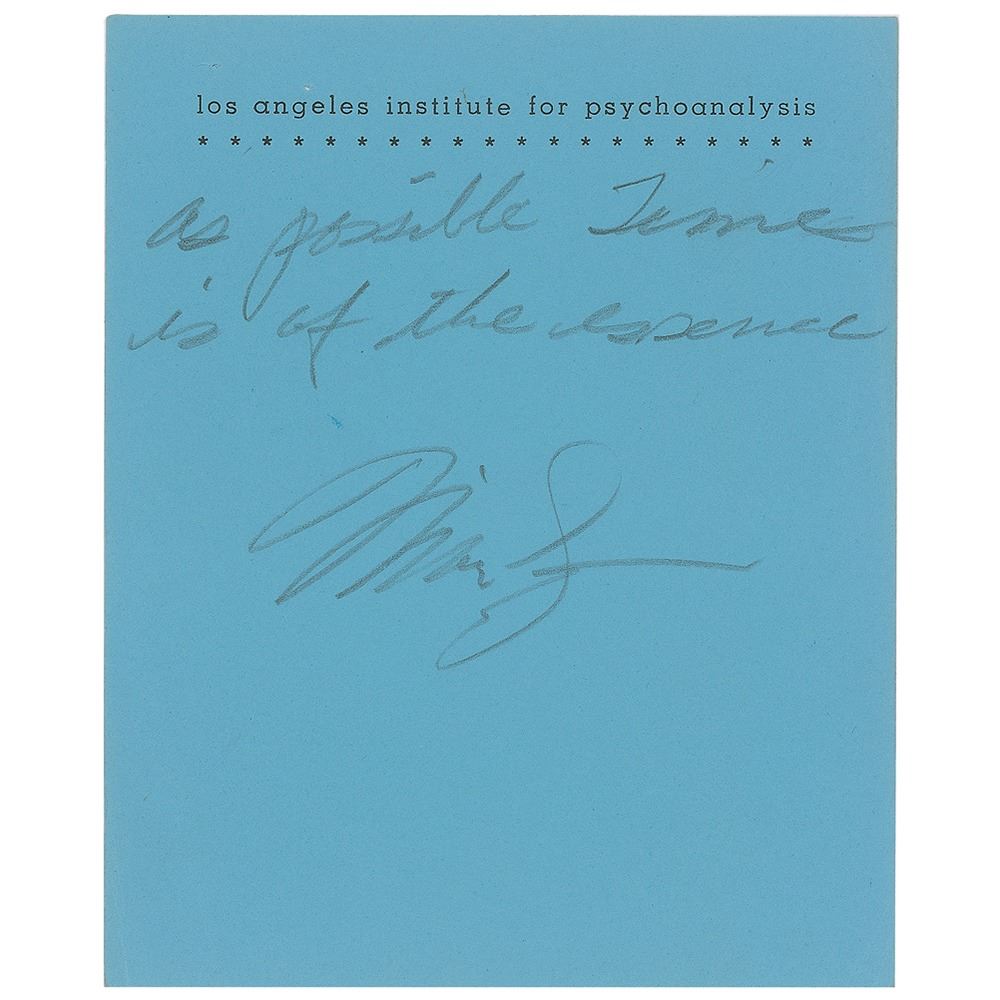 los angeles institute for psychoanalysis
* * * * * * * * * * * * * * * * * * * *
as possible Time
is of the essence